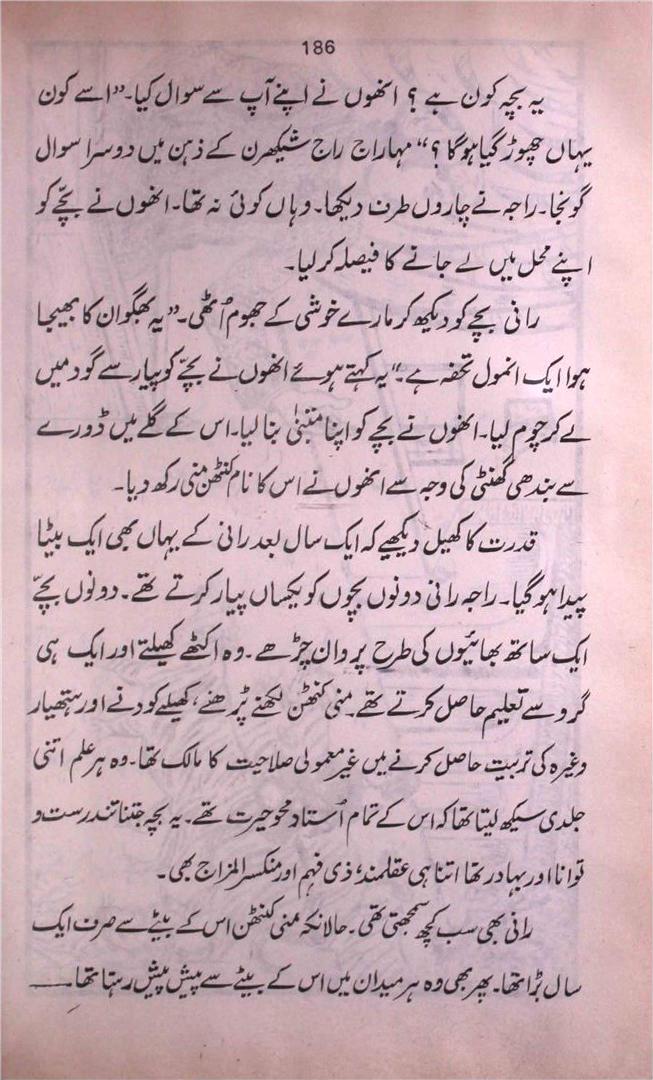 186
یہ بچہ کون ہے ؟ انھوں نے اپنے آپ سے سوال کیا۔ ”اسے کون
یہاں چھوڑ گیا ہوگا ؟“ مہاراج راج شیکھرن کے ذہن میں دوسرا سوال
گونجا۔ راجہ نے چاروں طرف دیکھا۔ وہاں کوئی نہ تھا۔ انھوں نے بچّے کو
اپنے محل میں لے جانے کا فیصلہ کر لیا۔
رانی بچے کو دیکھ کر مارے خوشی کے جھوم اُٹھی۔ ”یہ بھگوان کا بھیجا
ہوا ایک انمول تحفہ ہے۔“ یہ کہتے ہوئے انھوں نے بچّے کو پیار سے گود میں
لے کر چوم لیا۔ انھوں نے بچے کو اپنا متبنٰی بنا لیا۔ اس کے گلے میں ڈورے
سے بندھی گھنٹی کی وجہ سے انھوں نے اس کا نام کنٹھن منی رکھ دیا۔
قدرت کا کھیل دیکھیے کہ ایک سال بعد رانی کے یہاں بھی ایک بیٹا
پیدا ہوگیا۔ راجہ رانی دونوں بچوں کو یکساں پیار کرتے تھے۔ دونوں بچّے
ایک ساتھ بھائیوں کی طرح پروان چڑھے۔ وہ اکٹھے کھیلتے اور ایک ہی
گرو سے تعلیم حاصل کرتے تھے۔ منی کنٹھن لکھنے پڑھنے، کھیلنے کودنے اور ہتھیار
وغیرہ کی تربیت حاصل کرنے میں غیر معمولی صلاحیت کا مالک تھا۔ وہ ہر علم اتنی
جلدی سیکھ لیتا تھا کہ اس کے تمام اُستاد محو حیرت تھے۔ یہ بچہ جتنا تندرست و
توانا اور بہادر تھا اتنا ہی عقلمند، ذی فہم اور منکسر المزاج بھی۔
رانی بھی سب کچھ سمجھتی تھی۔ حالانکہ منی کنٹھن اس کے بیٹے سے صرف ایک
سال بڑا تھا۔ پھر بھی وہ ہر میدان میں اس کے بیٹے سے پیش پیش رہتا تھا۔